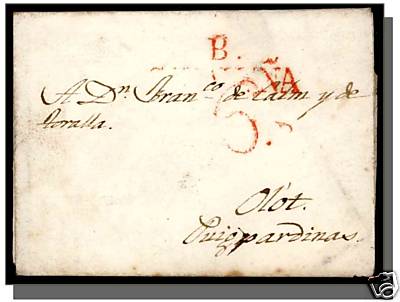 B.
A Dn. Franco. de calm y de
toralla.
Olot.
Puigpardinas.
eb